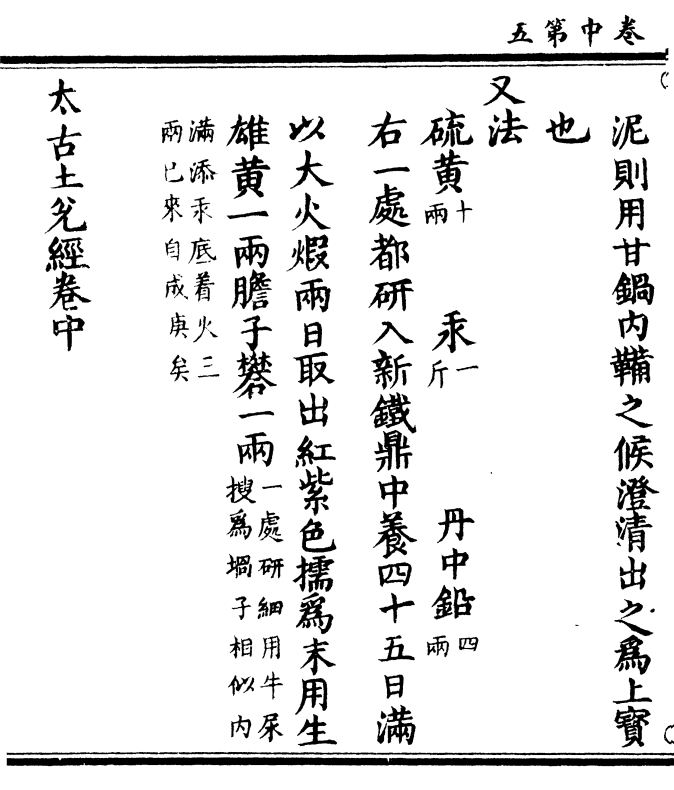 卷中第五
泥則用甘鍋內鞴之候澄清出之爲上寶
也
又法
硫黄十兩 汞一斤 丹中鉛四兩
右一處都研入新鐵鼎中養四十五日滿
以大火煆兩日取出紅紫色擩爲末用生
雄黄一兩膽子礬一兩一處研細用牛屎搜爲堝子相似内
滿添汞底着火三兩已來自成庚矣
太古土兊經卷中